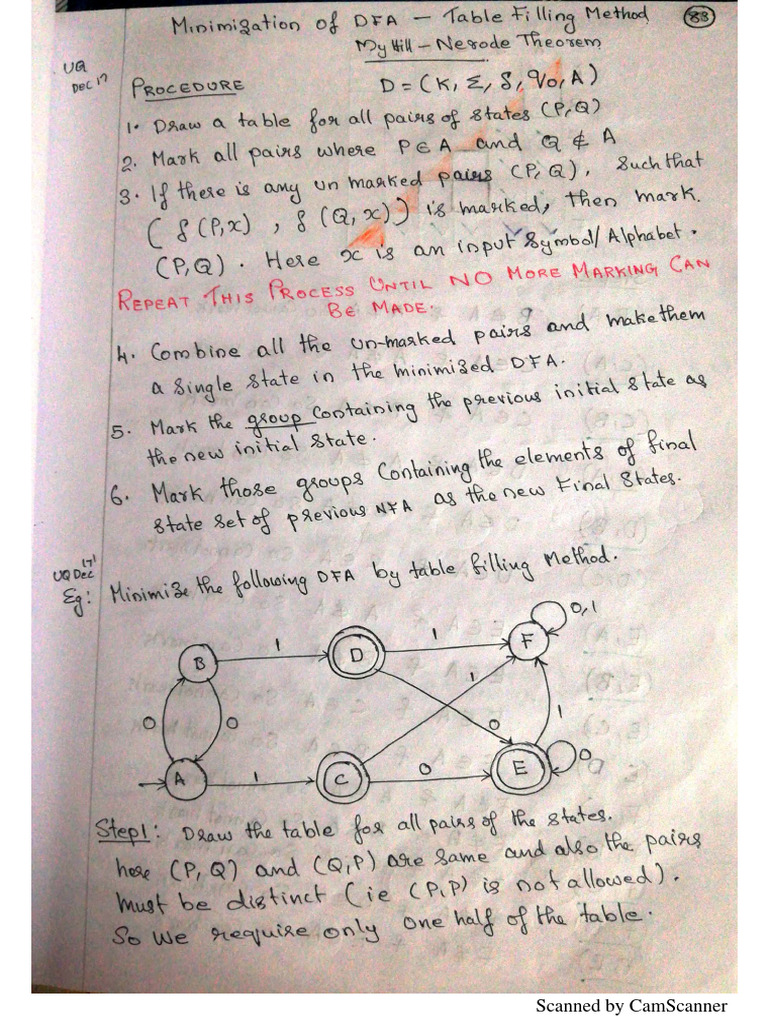 Minimization of DFA - Table Filling Method 83
MyHill - Nerode Theorem
UQ
Dec 17
PROCEDURE D = (K, Σ, δ, q0, A)
1. Draw a table for all pairs of states (P,Q)
2. Mark all pairs where P∈A and Q∉A
3. If there is any unmarked pairs (P,Q), such that
(δ(P,x), δ(Q,x)) is marked, then mark
(P,Q). Here x is an input symbol/Alphabet.
REPEAT THIS PROCESS UNTIL NO MORE MARKING CAN
BE MADE.
4. Combine all the un-marked pairs and make them
a single state in the minimised DFA.
5. Mark the group containing the previous initial state as
the new initial state.
6. Mark those groups containing the elements of final
state set of previous NFA as the new Final States.
UQ Dec 17'
Eg: Minimize the following DFA by table filling Method.
0,1
B 1 D 1 F
1
0 0 0 1
A 1 C 0 E 0
Step1: Draw the table for all pairs of the states.
here (P,Q) and (Q,P) are same and also the pairs
must be distinct (ie (P,P) is not allowed).
So we require only one half of the table.
Scanned by CamScanner